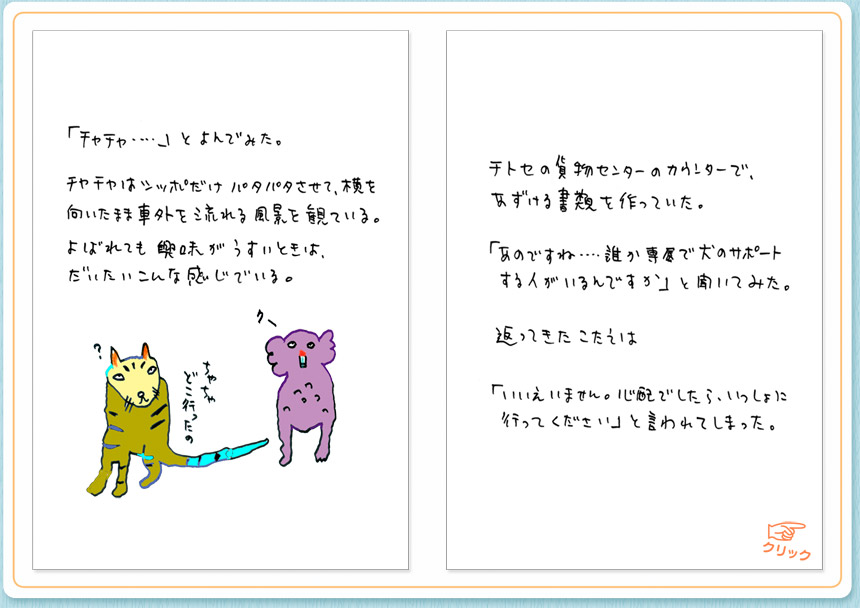 「チャチャ‥‥」とよんでみた。
チャチャはシッポだけ パタパタさせて、横を
向いたまま車外を流れる風景を観ている。
よばれても 興味がうすいときは、
だいたいこんな感じでいる。
?
ちゃちゃ
どこ行ったの
ク〜
チトセの貨物センターのカウンターで、
あずける書類を作っていた。
「あのですね‥‥誰か専属で犬のサポート
する人がいるんですか」と聞いてみた。
返ってきたこたえは
「いいえいません。心配でしたら、いっしょに
行ってください」と言われてしまった。
クリック